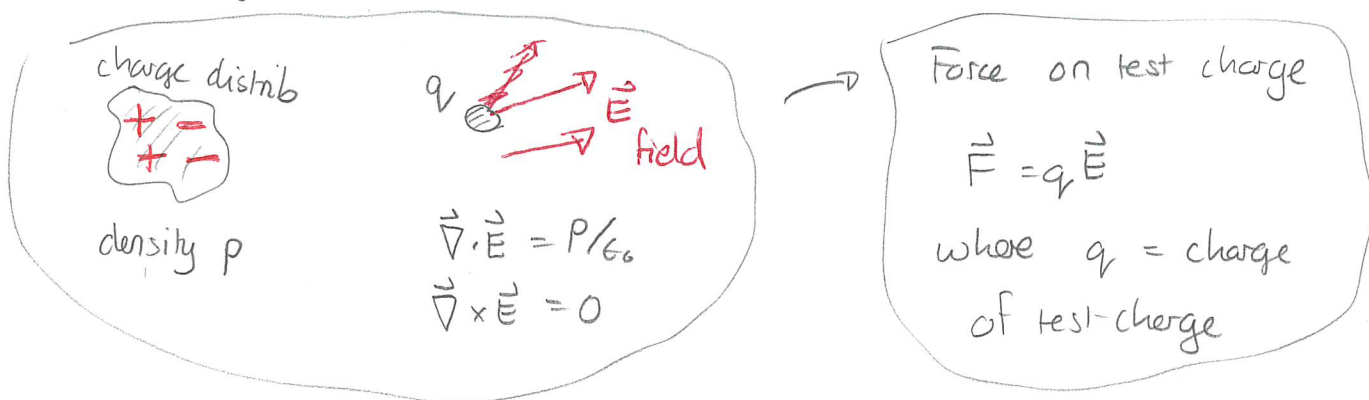 charge distrib
+ =
+ -
density ρ
q
E⃗
field
∇⃗·E⃗ = ρ/ε₀
∇⃗×E⃗ = 0
Force on test charge
F⃗ = qE⃗
where q = charge
of test-charge